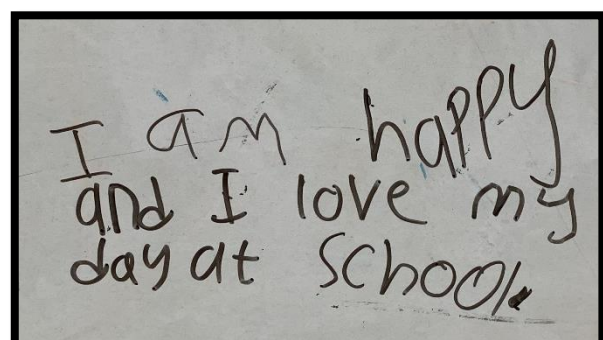 I am happy
and I love my
day at school.